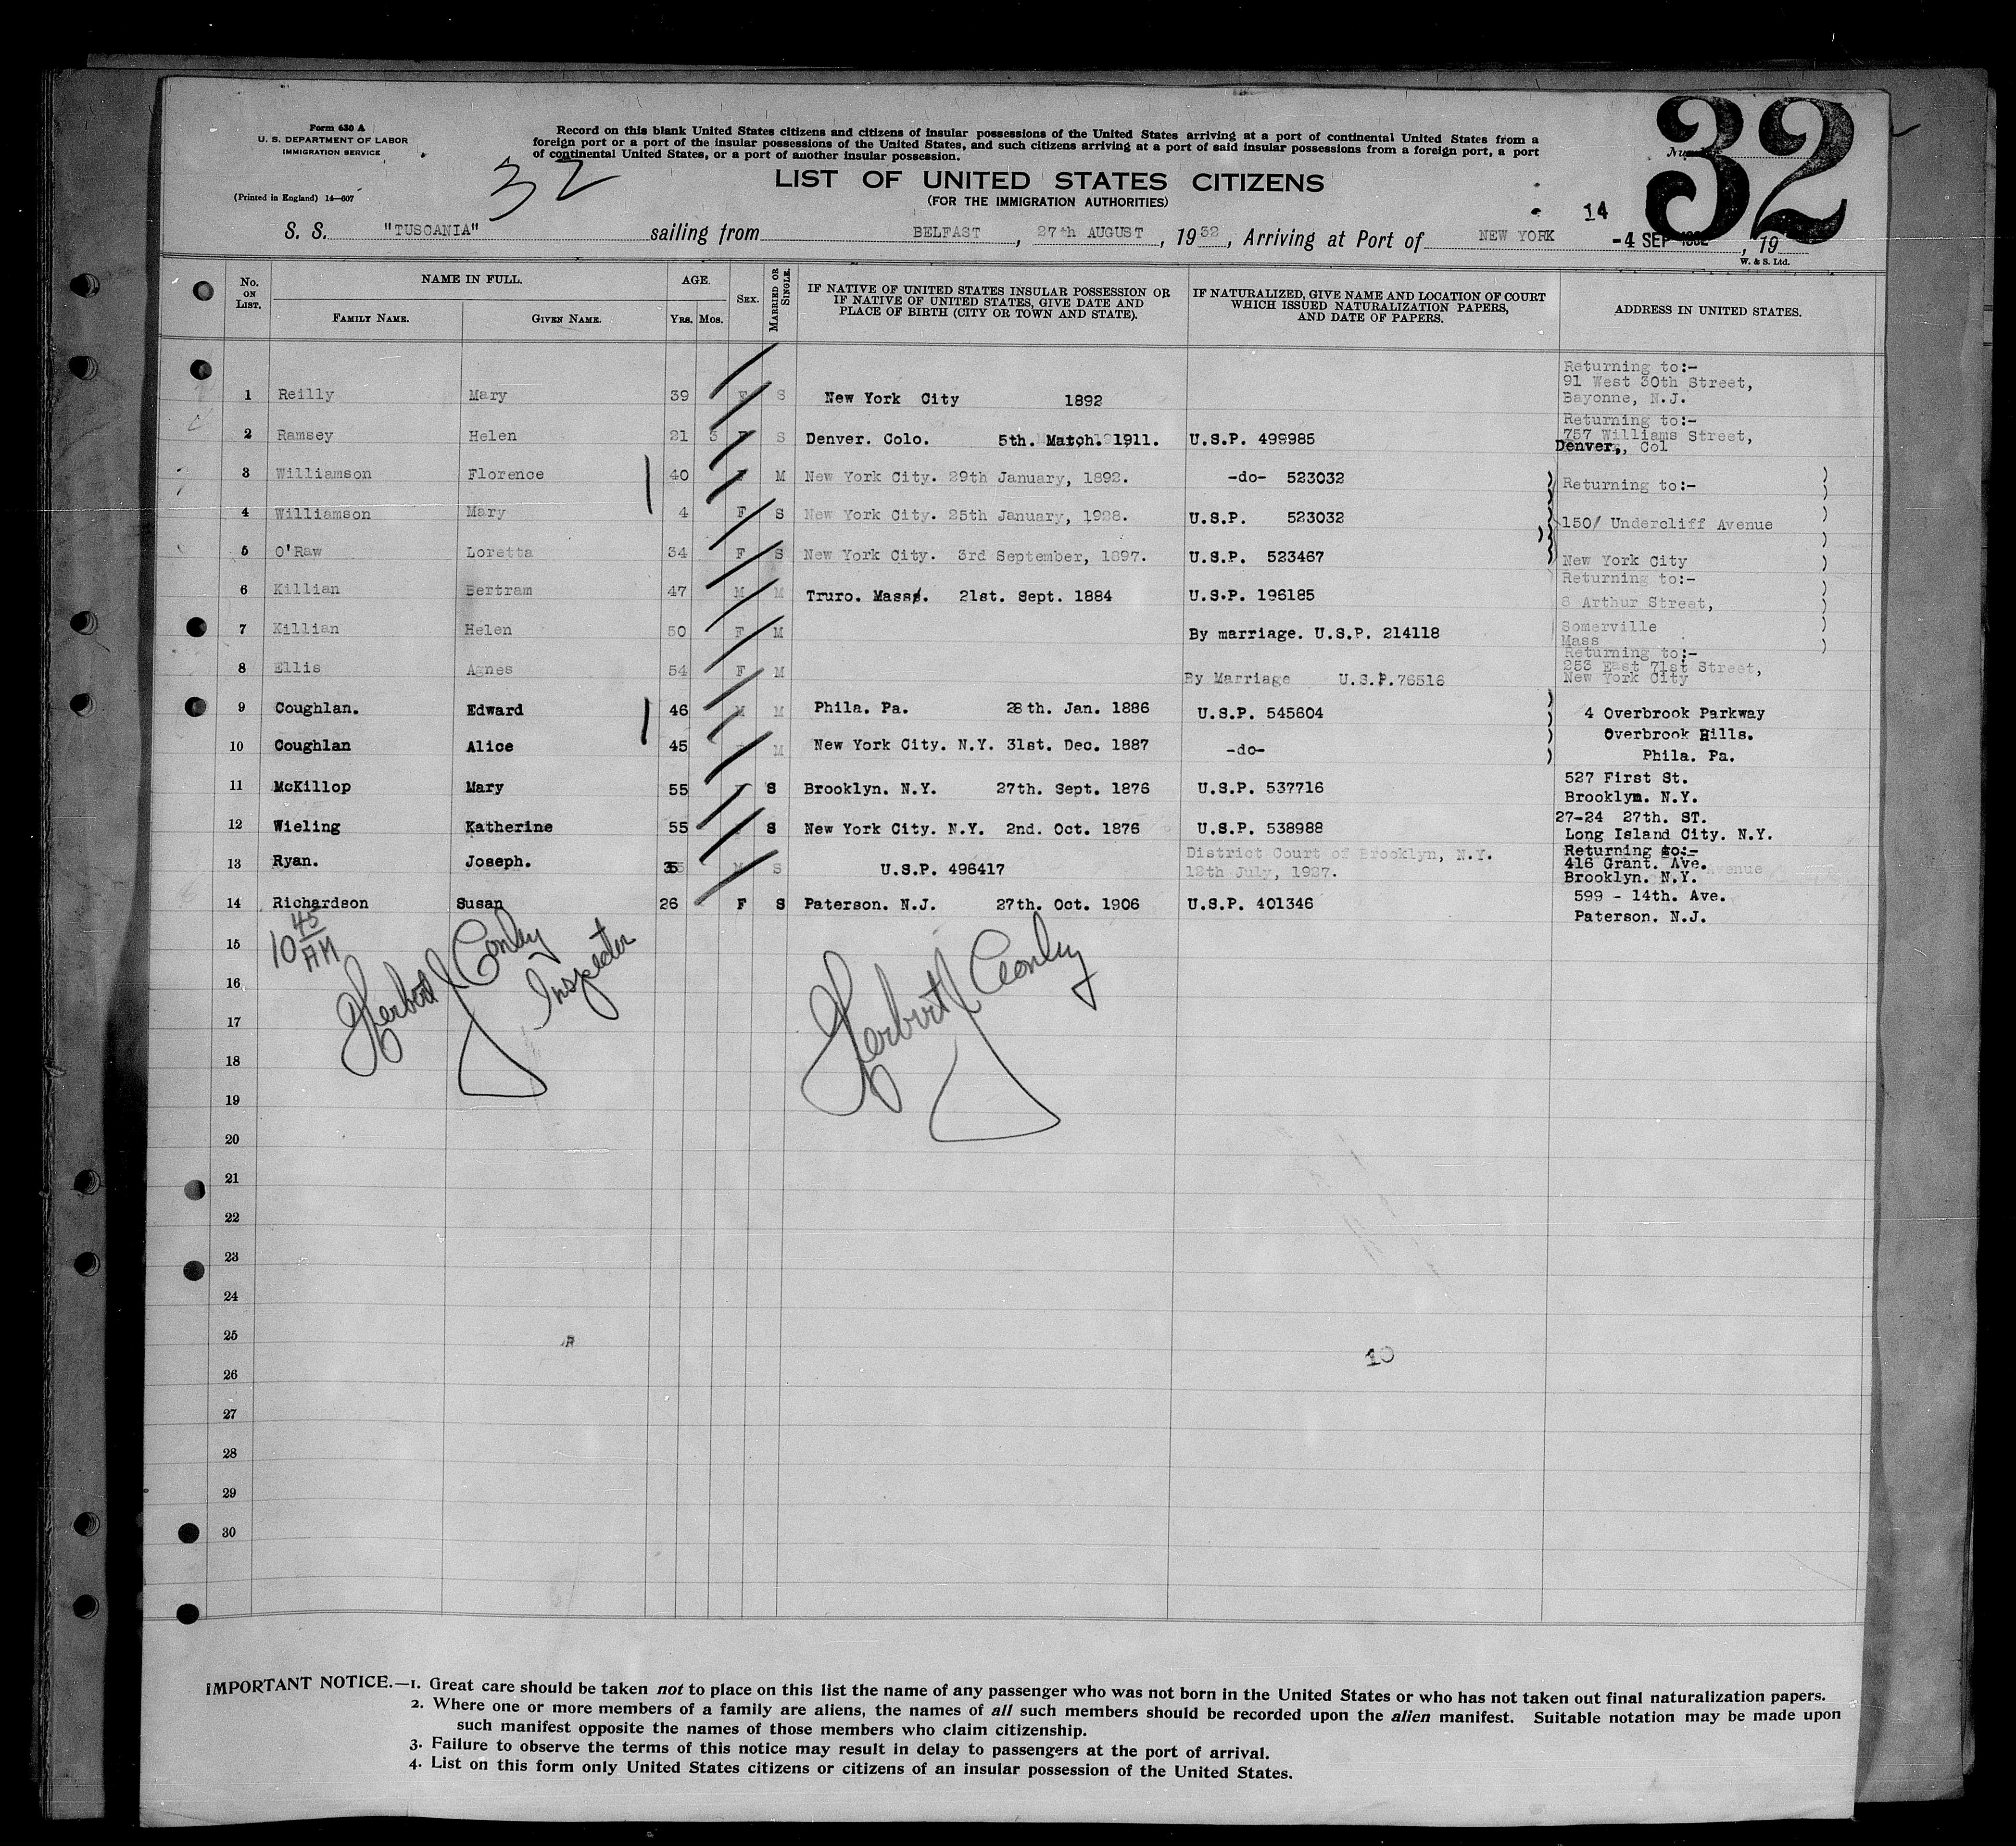 Form 630 A
U. S. DEPARTMENT OF LABOR
IMMIGRATION SERVICE
(Printed in England) 14—607
32
Record on this blank United States citizens and citizens of insular possessions of the United States arriving at a port of continental United States from a
foreign port or a port of the insular possessions of the United States, and such citizens arriving at a port of said insular possessions from a foreign port, a port
of continental United States, or a port of another insular possession.
32
LIST OF UNITED STATES CITIZENS
(FOR THE IMMIGRATION AUTHORITIES)
14
S. S. "TUSCANIA" sailing from BELFAST, 27th AUGUST, 1932, Arriving at Port of NEW YORK -4 SEP 1932, 19
W. & S. Ltd.
No. ON LIST. NAME IN FULL. FAMILY NAME. GIVEN NAME. AGE. Yrs. Mos. SEX. MARRIED OR SINGLE. IF NATIVE OF UNITED STATES INSULAR POSSESSION OR IF NATIVE OF UNITED STATES, GIVE DATE AND PLACE OF BIRTH (CITY OR TOWN AND STATE). IF NATURALIZED, GIVE NAME AND LOCATION OF COURT WHICH ISSUED NATURALIZATION PAPERS, AND DATE OF PAPERS. ADDRESS IN UNITED STATES.
1 Reilly Mary 39 F S New York City 1892 Returning to:- 91 West 30th Street, Bayonne, N.J.
2 Ramsey Helen 21 5 S Denver. Colo. 5th. March. 1911. U.S.P. 499985 Returning to:- 757 Williams Street, Denver, Col
3 Williamson Florence 40 M New York City. 29th January, 1892. -do- 523032 Returning to:-
4 Williamson Mary 4 F S New York City. 25th January, 1928. U.S.P. 523032 150/ Undercliff Avenue
5 O'Raw Loretta 34 F S New York City. 3rd September, 1897. U.S.P. 523467 New York City
6 Killian Bertram 47 M M Truro. Mass. 21st. Sept. 1884 U.S.P. 196185 Returning to:- 8 Arthur Street,
7 Killian Helen 50 F M By marriage. U.S.P. 214118 Somerville Mass
8 Ellis Agnes 54 F M By Marriage U.S.P.76516 Returning to:- 253 East 71st Street, New York City
9 Coughlan. Edward 46 M M Phila. Pa. 28th. Jan. 1886 U.S.P. 545604 4 Overbrook Parkway
10 Coughlan Alice 45 M New York City. N.Y. 31st. Dec. 1887 -do- Overbrook Hills. Phila. Pa.
11 McKillop Mary 55 S Brooklyn. N.Y. 27th. Sept. 1876 U.S.P. 537716 527 First St. Brooklyn. N.Y.
12 Wieling Katherine 55 S New York City. N.Y. 2nd. Oct. 1876 U.S.P. 538988 27-24 27th. ST. Long Island City. N.Y.
13 Ryan. Joseph. M S U.S.P. 496417 District Court of Brooklyn, N.Y. 12th July, 1927. Returning to:- 416 Grant. Ave. Brooklyn. N.Y.
14 Richardson Susan 26 F S Paterson. N.J. 27th. Oct. 1906 U.S.P. 401346 599 - 14th. Ave. Paterson. N.J.
10 45 AM
Herbert J Conley Inspector
Herbert J Conley
15
16
17
18
19
20
21
22
23
24
25
10
26
27
28
29
30
IMPORTANT NOTICE.—1. Great care should be taken not to place on this list the name of any passenger who was not born in the United States or who has not taken out final naturalization papers.
2. Where one or more members of a family are aliens, the names of all such members should be recorded upon the alien manifest. Suitable notation may be made upon
such manifest opposite the names of those members who claim citizenship.
3. Failure to observe the terms of this notice may result in delay to passengers at the port of arrival.
4. List on this form only United States citizens or citizens of an insular possession of the United States.